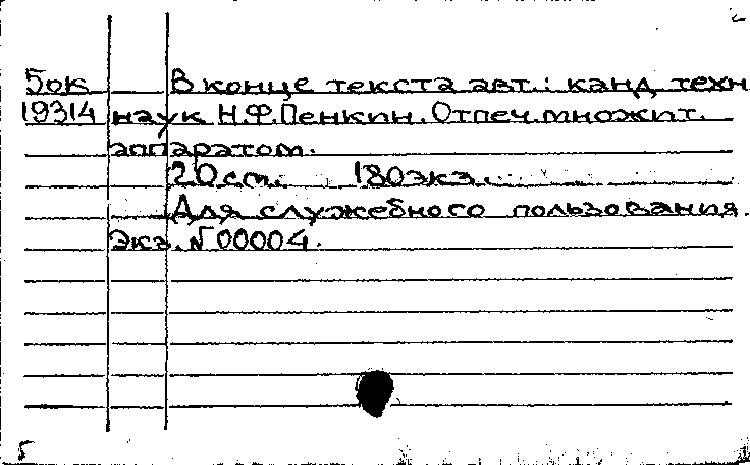 Бок В конце текста авт.: канд. техн
19314 наук Н.Ф.Пенкин. Отпеч. множит.
аппаратом.
20 см. 180 экз.
Для служебного пользования.
Экз. № 00004.